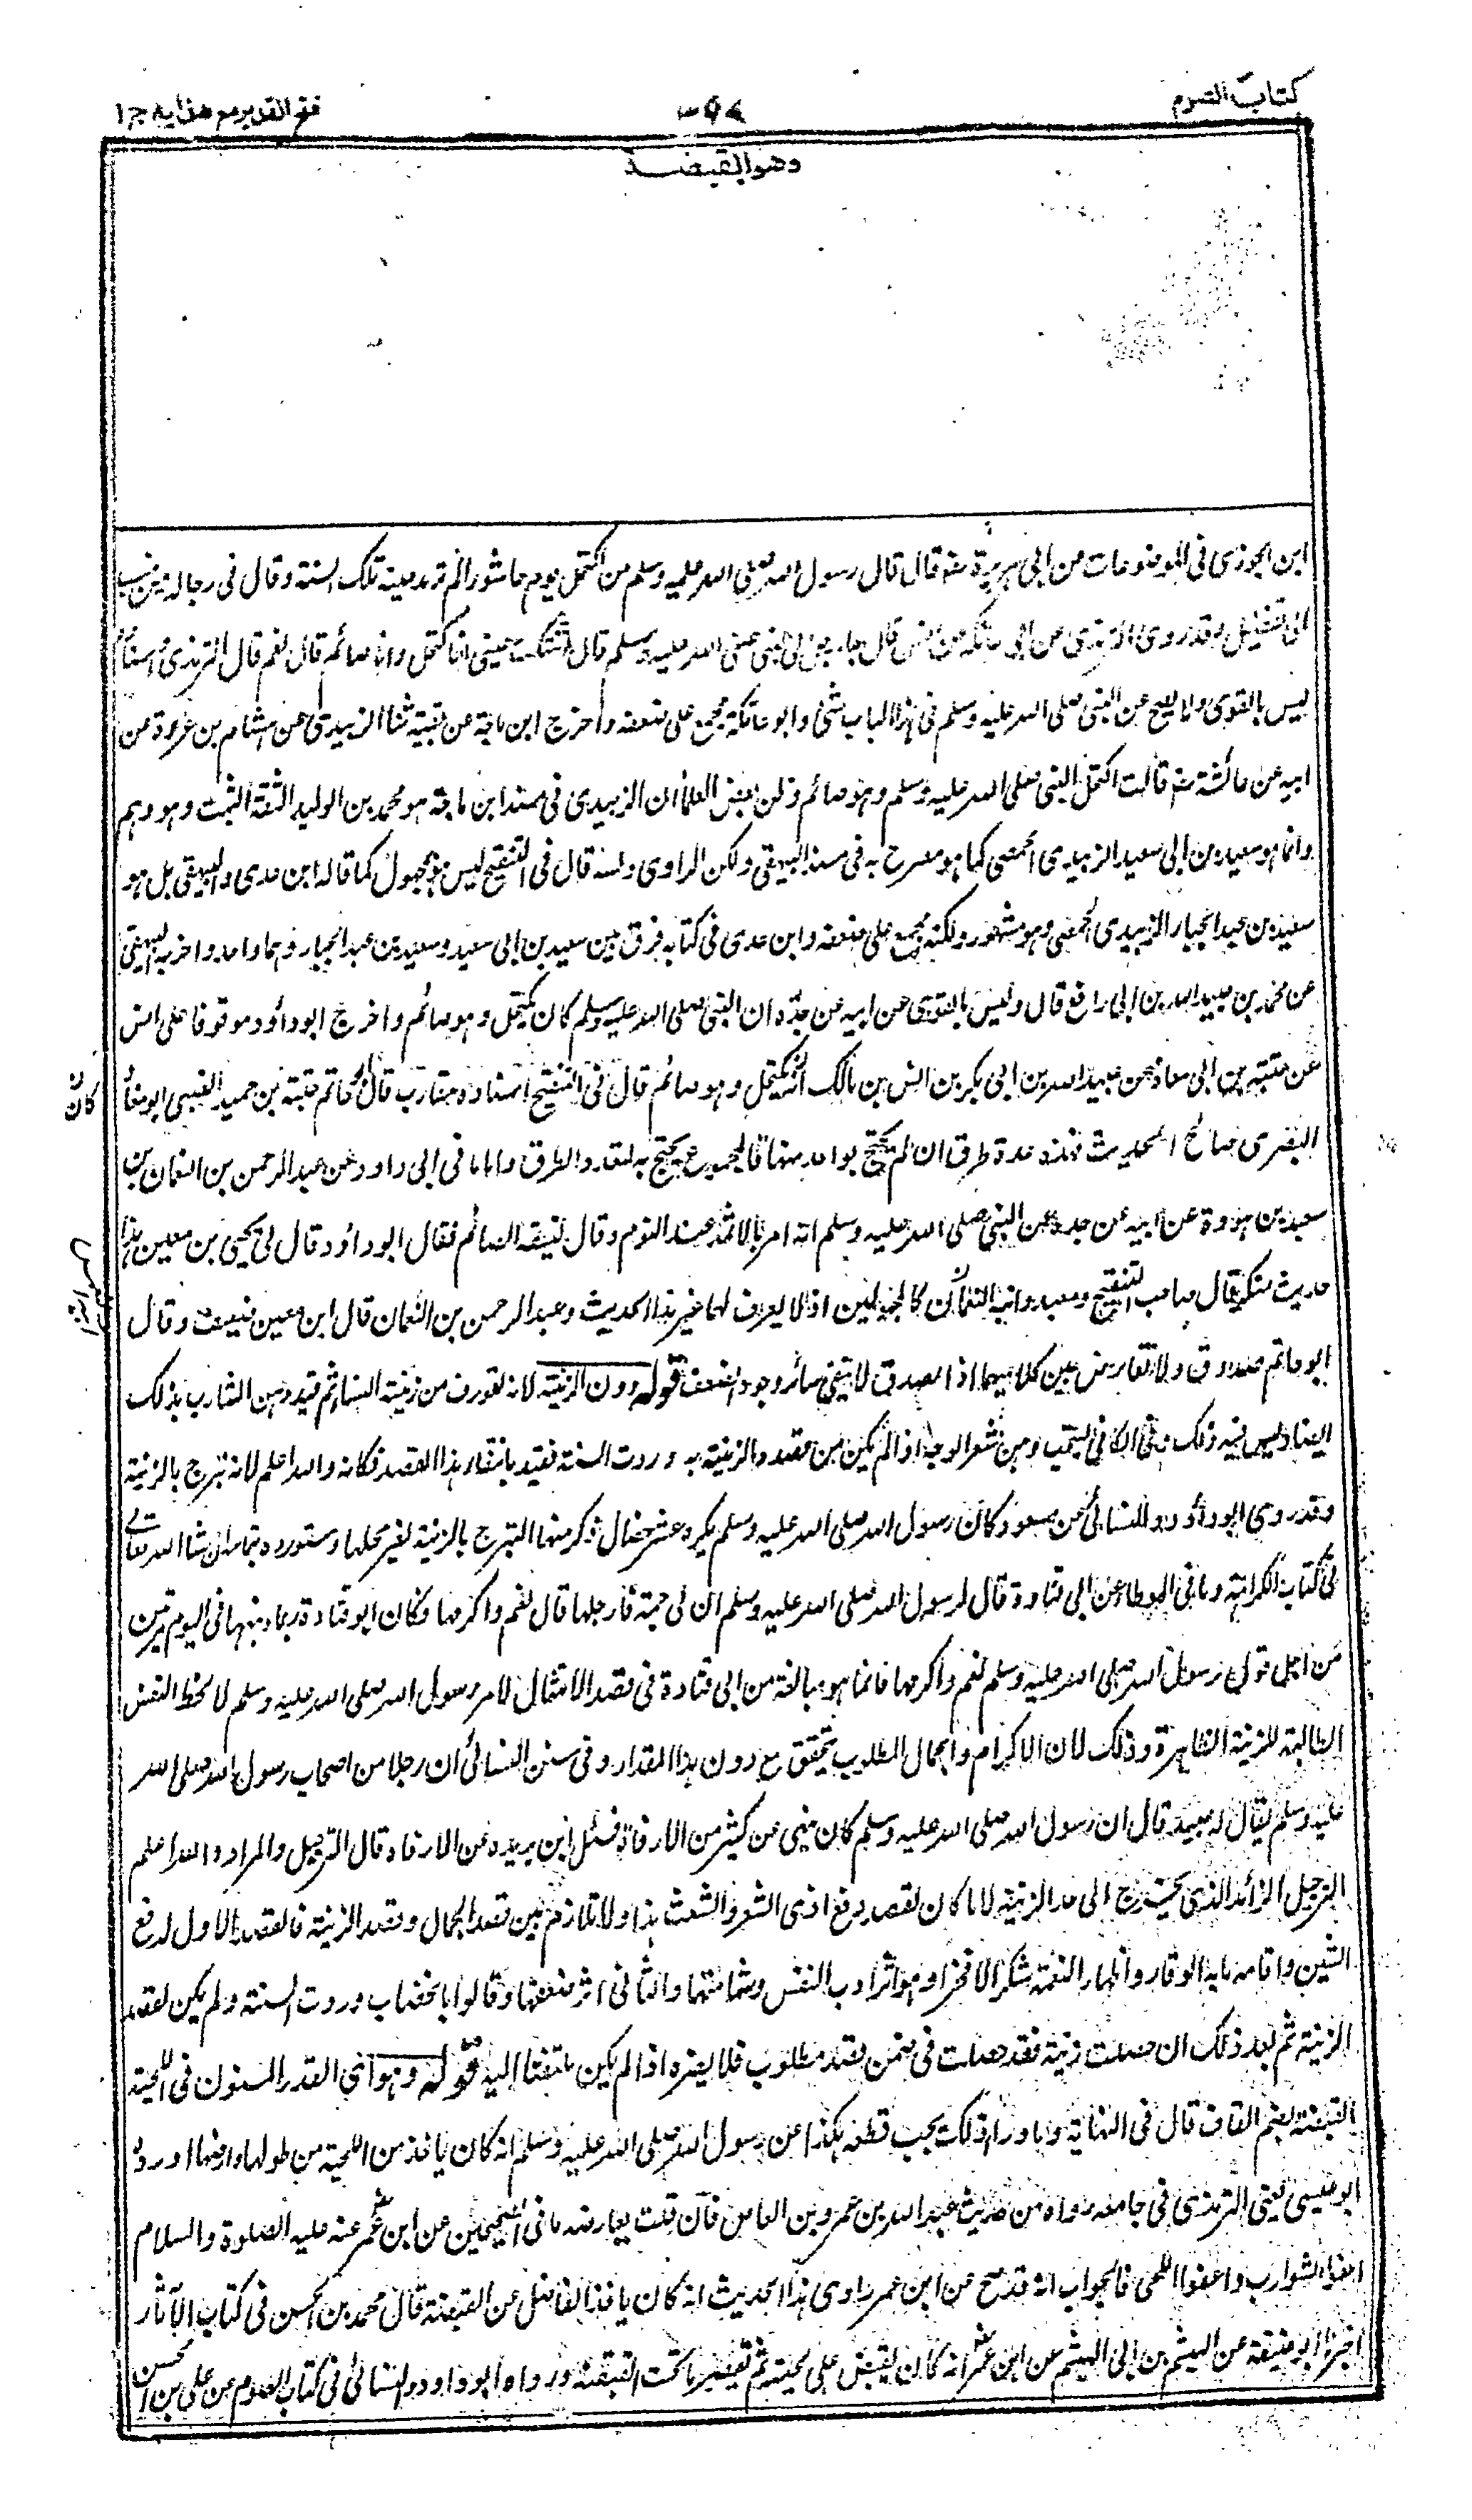 كتاب الصوم
٣٩٤
فتح القدير مع هدايه ج ١
وهو القبضة
ابن الجوزى فى الموضوعات من ابى هريرة رضه قال قال رسول الله صلى الله عليه وسلم من اكتحل يوم عاشورا لم ترمد عينه تلك السنة وقال فى رجاله من ينسب
الى تغفيل وقد روى الترمذى عن ابى عاتكة عن انس قال جاء رجل الى النبى صلى الله عليه وسلم قال اشتكت عينى افاكتحل وانا صائم قال نعم قال الترمذى اسناده
ليس بالقوى ولا يصح عن النبى صلى الله عليه وسلم فى هذا الباب شئ وابو عاتكة مجمع على ضعفه واخرج ابن ماجة عن بقية ثنا الزبيدى عن هشام بن عروة عن
ابيه عن عائشة رضه قالت اكتحل النبى صلى الله عليه وسلم وهو صائم وظن بعض العلماء ان الزبيدى فى سند ابن ماجة هو محمد بن الوليد الثقة الثبت وهو وهم
وانما هو سعيد بن ابى سعيد الزبيدى الحمصى كما هو مصرح به فى سند البيهقى ولكن الراوى دلسه قال فى التنقيح ليس هو بمجهول كما قاله ابن عدى والبيهقى بل هو
سعيد بن عبد الجبار الزبيدى الحمصى وهو مشهور ولكنه مجمع على ضعفه وابن عدى فى كتابه فرق بين سعيد بن ابى سعيد وسعيد بن عبد الجبار وهما واحد واخرج البيهقى
عن محمد بن عبيد الله بن ابى رافع قال وليس بالقوى عن ابيه عن جده ان النبى صلى الله عليه وسلم كان يكتحل وهو صائم واخرج ابو داود موقوفا على انس
عن عتبة بن ابى معاذ عن عبيد الله بن ابى بكر بن انس بن مالك انه يكتحل وهو صائم قال فى التنقيح اسناده مقارب قال ابو حاتم عتبة بن حميد الضبى ابو معاذ
كان
البصرى صالح الحديث فهذه عدة طرق ان لم يحتج بواحد منها فالمجموع يحتج به لتعدد الطرق واما ما فى ابى داود عن عبد الرحمن بن النعمان بن
سعيد بن هوذة عن ابيه عن جده عن النبى صلى الله عليه وسلم انه امر بالاثمد عند النوم وقال ليتقه الصائم فقال ابو داود قال لى يحيى بن معين هذا
حديث منكر قال صاحب التنقيح ومعبد وابنه النعمان كالمجهولين اذ لا يعرف لهما غير هذا الحديث وعبد الرحمن بن النعمان قال ابن معين ضعيف وقال
ابو حاتم صدوق ولا تعارض بين كلاميهما اذ الصدق لا ينفى سائر وجوه الضعف قوله دون الزينة لانه تعورف من زينة النساء ثم قيد دهن الشارب بذلك
ايضا وليس فيه ذلك وفى الكافى يستحب دهن شعر الوجه اذا لم يكن من قصده الزينة به وردت السنة فقيد بانتفاء هذا القصد فكانه والله اعلم لانه تبرج بالزينة
وقد روى ابو داود والنسائى عن ابن مسعود كان رسول الله صلى الله عليه وسلم يكره عشر خصال ذكر منها التبرج بالزينة لغير محلها وستورده بتمامه ان شاء الله تعالى
فى كتاب الكراهية وما فى الموطا عن ابى قتادة قال لرسول الله صلى الله عليه وسلم ان لى جمة فأرجلها قال نعم واكرمها فكان ابو قتادة ربما دهنها فى اليوم مرتين
من اجل قول رسول الله صلى الله عليه وسلم نعم واكرمها فانما هو مبالغة من ابى قتادة فى قصد الامتثال لامر رسول الله صلى الله عليه وسلم لا لحظ النفس
الطالبة للزينة الظاهرة وذلك لان الاكرام والجمال المطلوب يتحقق مع دون هذا المقدار وفى سنن النسائى ان رجلا من اصحاب رسول الله صلى الله
عليه وسلم يقال له عبيد قال ان رسول الله صلى الله عليه وسلم كان ينهى عن كثير من الارفاه فسئل ابن بريده عن الارفاه قال الترجيل والمراد والله اعلم
الترجيل الزائد الذى يخرج الى حد الزينة لا ما كان لقصد دفع اذى الشعر والشعث هذا ولا تلازم بين قصد الجمال وقصد الزينة فالقصد الاول لدفع
الشين واقامة ما به الوقار واظهار النعمة شكرا لا فخرا وهو اثر ادب النفس وشهامتها والثانى اثر ضعفها وقالوا بالخضاب وردت السنة ولم يكن لقصد
الزينة ثم بعد ذلك ان حصلت زينة فقد حصلت فى ضمن قصد مطلوب فلا يضره اذا لم يكن ملتفتا اليه قوله وهو اى القدر المسنون فى اللحية
القبضة بضم القاف قال فى النهاية وما وراء ذلك يجب قطعه هكذا عن رسول الله صلى الله عليه وسلم انه كان ياخذ من اللحية من طولها وعرضها اورده
ابو عيسى يعنى الترمذى فى جامعه رواه من حديث عبد الله بن عمرو بن العاص فان قلت يعارضه ما فى الصحيحين عن ابن عمر عنه عليه الصلوة والسلام
احفوا الشوارب واعفوا اللحى فالجواب انه قد صح عن ابن عمر راوى هذا الحديث انه كان ياخذ الفاضل عن القبضة قال محمد بن الحسن فى كتاب الآثار
اخبرنا ابو حنيفة عن الهيثم بن ابى الهيثم عن ابن عمر انه كان يقبض على لحيته ثم يقص ما تحت القبضة ورواه ابو داود والنسائى فى كتاب الصوم عن على بن الحسن